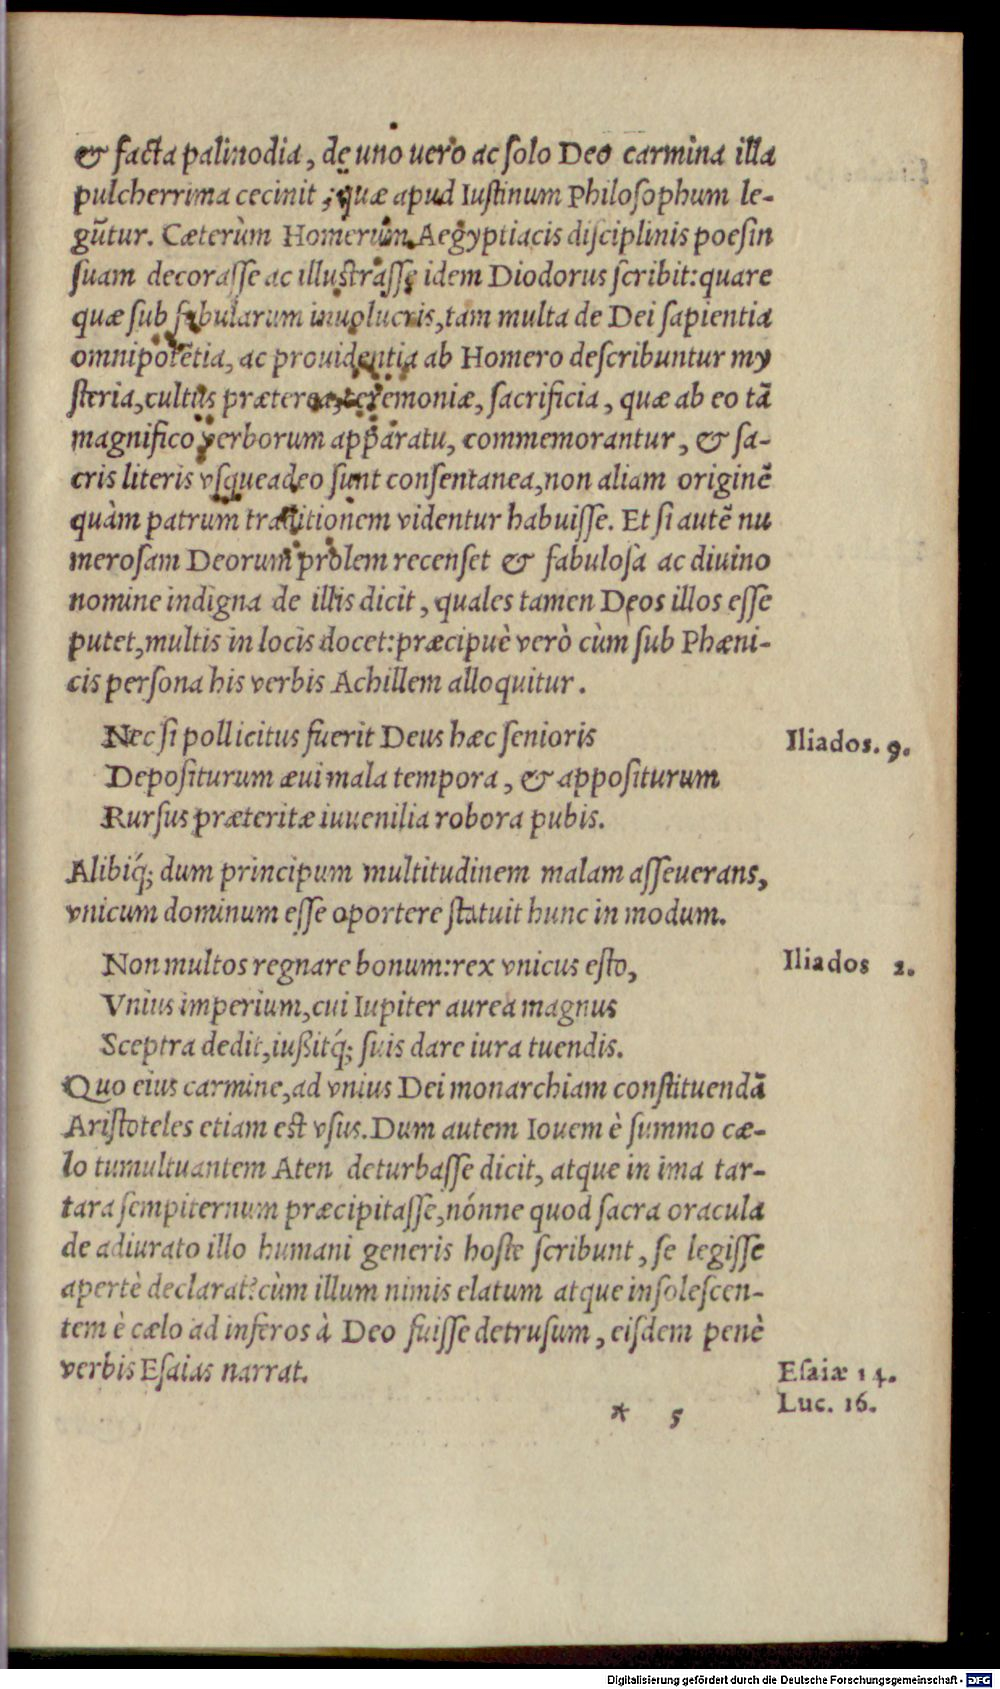 & facta palinodia, de uno uero ac ſolo Deo carmina illa
pulcherrima cecinit ; quæ apud Iuſtinum Philoſophum le-
gūtur. Cæterùm Homerum Aegyptiacis diſciplinis poeſin
ſuam decoraſſe ac illuſtraſſe idem Diodorus ſcribit: quare
quæ ſub fabularum inuolucris, tam multa de Dei ſapientia
omnipotētia, ac prouidentia ab Homero deſcribuntur my
ſteria, cultus præterea, ceremoniæ, ſacrificia, quæ ab eo tā
magnifico verborum apparatu, commemorantur, & ſa-
cris literis vſqueadeo ſunt conſentanea, non aliam originē
quàm patrum traditionem videntur habuiſſe. Et ſi autē nu
meroſam Deorum prolem recenſet & fabuloſa ac diuino
nomine indigna de illis dicit, quales tamen Deos illos eſſe
putet, multis in locis docet: præcipuè verò cùm ſub Phæni-
cis perſona his verbis Achillem alloquitur.
Nec ſi pollicitus fuerit Deus hæc ſenioris
Iliados. 9.
Depoſiturum æui mala tempora, & appoſiturum
Rurſus præteritæ iuuenilia robora pubis.
Alibiq́; dum principum multitudinem malam aſſeuerans,
vnicum dominum eſſe oportere ſtatuit hunc in modum.
Non multos regnare bonum: rex vnicus eſto,
Iliados 2.
Vnius imperium, cui Iupiter aurea magnus
Sceptra dedit, iußitq́; ſuis dare iura tuendis.
Quo eius carmine, ad vnius Dei monarchiam conſtituendā
Ariſtoteles etiam eſt vſus. Dum autem Iouem è ſummo cæ-
lo tumultuantem Aten deturbaſſe dicit, atque in ima tar-
tara ſempiternum præcipitaſſe, nónne quod ſacra oracula
de adiurato illo humani generis hoſte ſcribunt, ſe legiſſe
apertè declarat? cùm illum nimis elatum atque inſoleſcen-
tem è cælo ad inferos à Deo fuiſſe detruſum, eiſdem penè
verbis Eſaias narrat.
Eſaiæ 14.
Luc. 16.
* 5
Digitalisierung gefördert durch die Deutsche Forschungsgemeinschaft - DFG